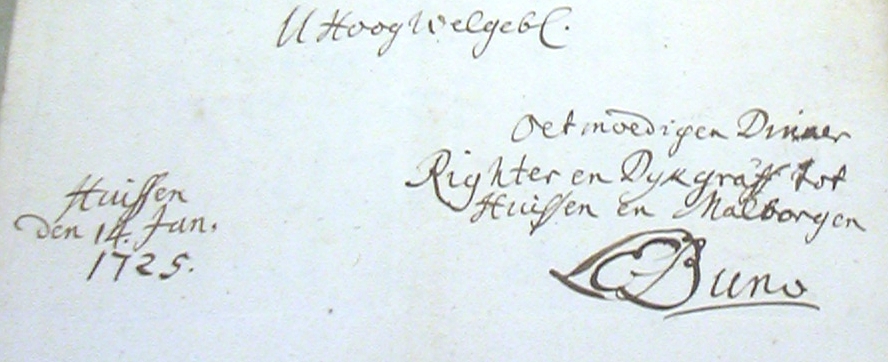 U HoogWelgebl.
Oetmoedigen Dinaer
Righter en Dykgräff tot
Huissen en Malborgen
Huissen
den 14. Jan.
1725.
Buno